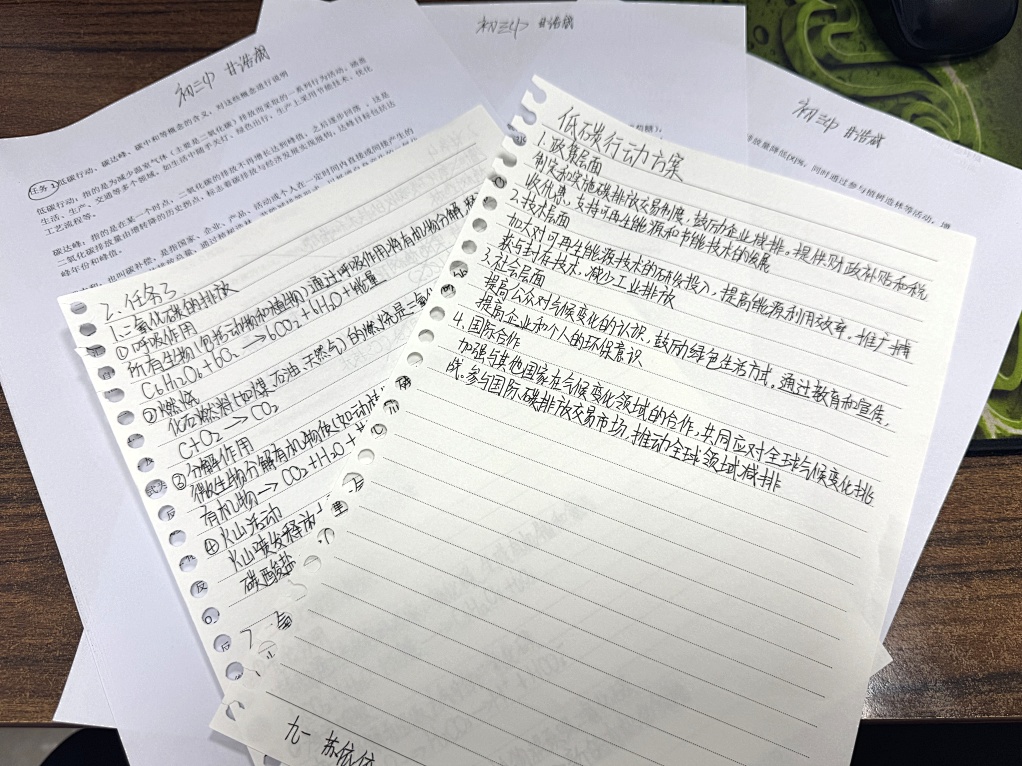 初三中
初三中
初三中
任务1
低碳行动、碳达峰、碳中和等概念的含义，对这些概念进行说明
低碳行动：指的是为减少温室气体（主要是二氧化碳）排放而采取的一系列行为活动，涵盖
生活、生产、交通等多个领域，如生活中随手关灯、绿色出行，生产上采用节能技术、优化
工艺流程等。
碳达峰：指的是在某一个时点，二氧化碳的排放不再增长达到峰值，之后逐步回落，这是
二氧化碳排放量由增转降的历史拐点，标志着碳排放与经济发展实现脱钩，达峰目标包括达
峰年份和峰值。
也叫碳补偿，是指国家、企业、产品、活动或个人在一定时间内直接或间接产生的
排放量降低区网，同时通过参与植树造林等活动，增
2、任务3
1.二氧化碳的排放
①呼吸作用
所有生物(包括动物和植物)通过呼吸作用将有机物分解
C6H12O6+6O2→6CO2+6H2O+能量
②燃烧
化石燃料(如煤、石油、天然气)的燃烧是二氧化
C+O2→CO2
③分解作用
微生物分解有机物质(如动
有机物→CO2+H2O+
④火山活动
火山喷发释放
碳酸盐
低碳行动方案
1.政策层面
制定和实施碳排放交易制度，鼓励企业减排。提供财政补贴和税
收优惠，支持可再生能源和节能技术的发展
2.技术层面
加大对可再生能源技术的研发投入，提高能源利用效率，推广捕
获与封存技术，减少工业排放
3.社会层面
提高公众对气候变化的认识，鼓励绿色生活方式。通过教育和宣传，
提高企业和个人的环保意识
4.国际合作
加强与其他国家在气候变化领域的合作，共同应对全球气候变化挑
战。参与国际碳排放交易市场，推动全球领域减排
九一